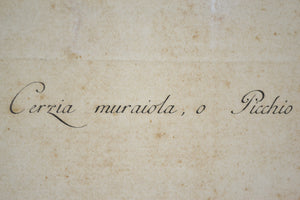 Cerzia muraiola, o Picchio